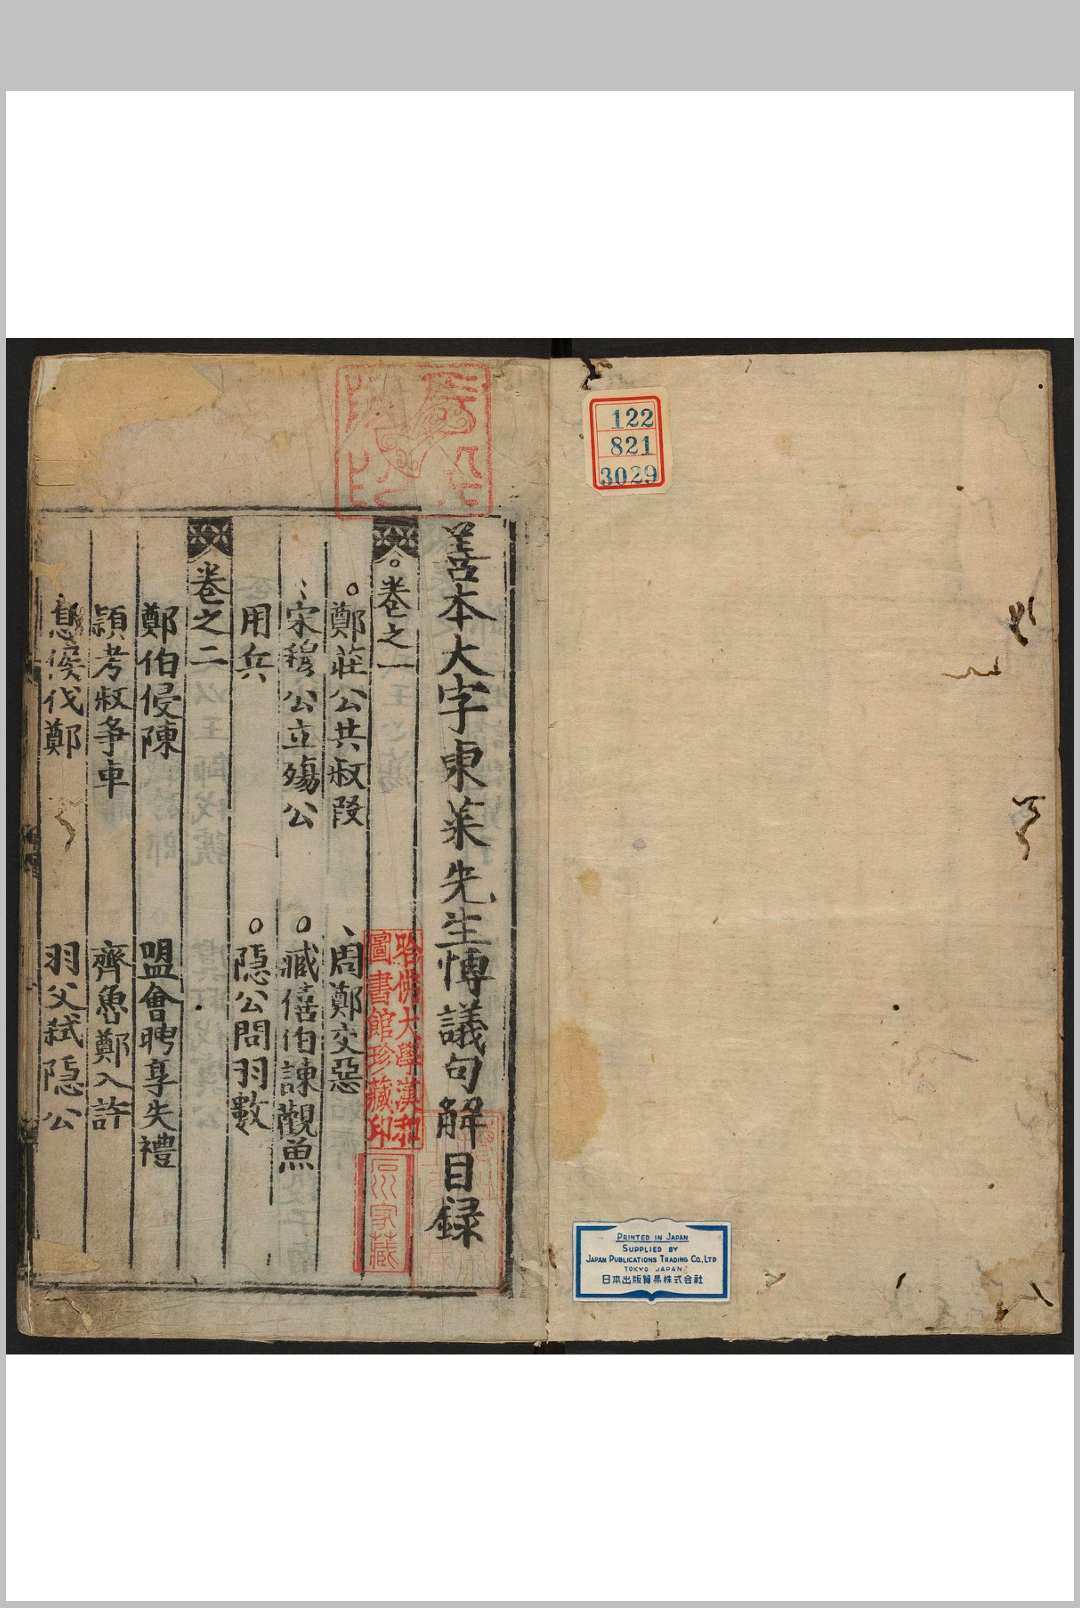 122
821
3029
PRINTED IN JAPAN
SUPPLIED BY
JAPAN PUBLICATIONS TRADING CO., LTD
TOKYO JAPAN
日本出版貿易株式会社
善本大字東萊先生博議句解目録
卷之一
鄭莊公共叔段
周鄭交惡
宋穆公立殤公
臧僖伯諫觀魚
用兵
隱公問羽數
卷之二
鄭伯侵陳
盟會聘享失禮
頴考叔爭車
齊魯鄭入許
息侯伐鄭
羽父弒隱公
哈佛大學漢和
圖書館珍藏印